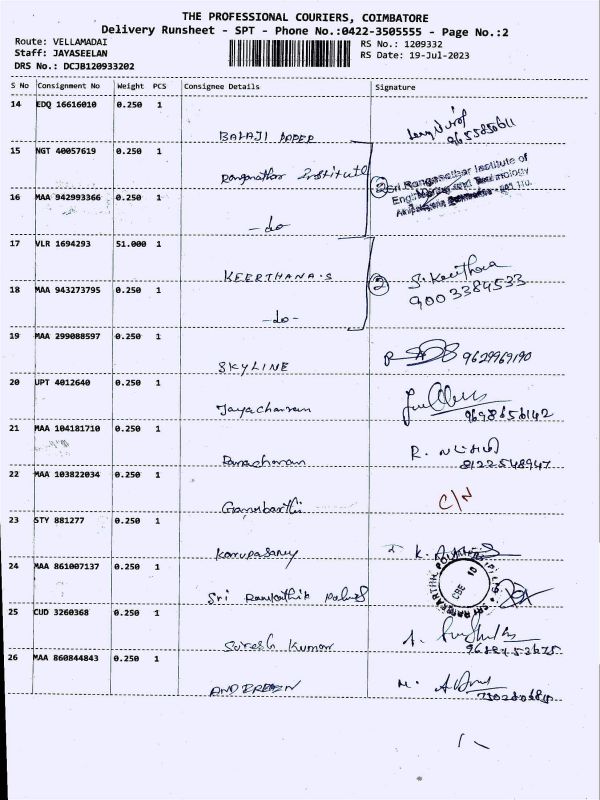 THE PROFESSIONAL COURIERS, COIMBATORE
Delivery Runsheet - SPT - Phone No.:0422-3505555 - Page No.:2
Route: VELLAMADAI
RS No.: 1209332
Staff: JAYASEELAN
RS Date: 19-Jul-2023
DRS No.: DCJB120933202
S No Consignment No Weight PCS Consignee Details Signature
14 EDQ 16616010 0.250 1
BALAJI PAPER
15 NGT 40057619 0.250 1
Ranganathar Institute
2 Sri Ranganathar Institute of
Engineering and Technology
16 MAA 942993366 0.250 1
-do
17 VLR 1694293 51.000 1
KEERTHANA.S
2 S. Keerthana
9003384533
18 MAA 943273795 0.250 1
-do-
19 MAA 299088597 0.250 1
SKYLINE
9629969190
20 UPT 4012640 0.250 1
Jayacharan
9698656142
21 MAA 104181710 0.250 1
Ramacharan
R.
8122548947
22 MAA 103822034 0.250 1
C/N
23 STY 881277 0.250 1
Karupasamy
K.
24 MAA 861007137 0.250 1
Sri Ramkarthik
CBE
25 CUD 3260368 0.250 1
Suresh Kumar
A.
26 MAA 860844843 0.250 1
M.